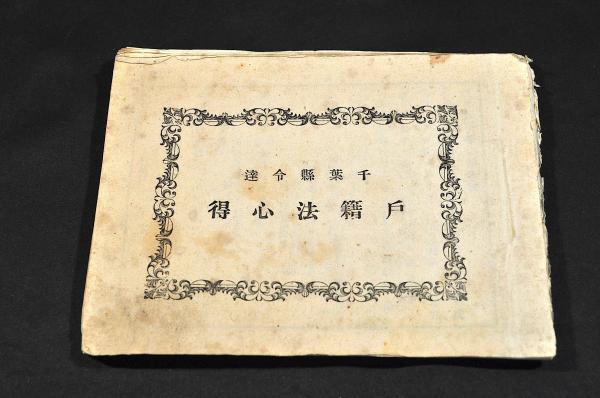 千葉縣令達
戶籍法心得